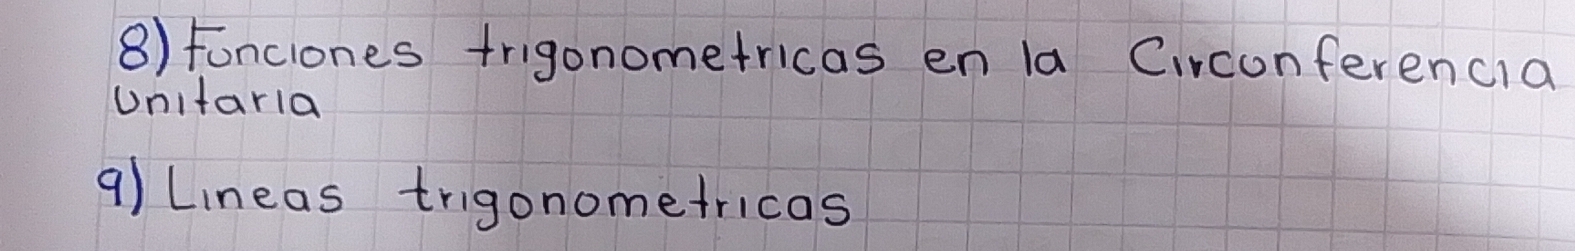 8) Funciones trigonometricas en la Circonferencia
unitaria
9) Lineas trigonometricas